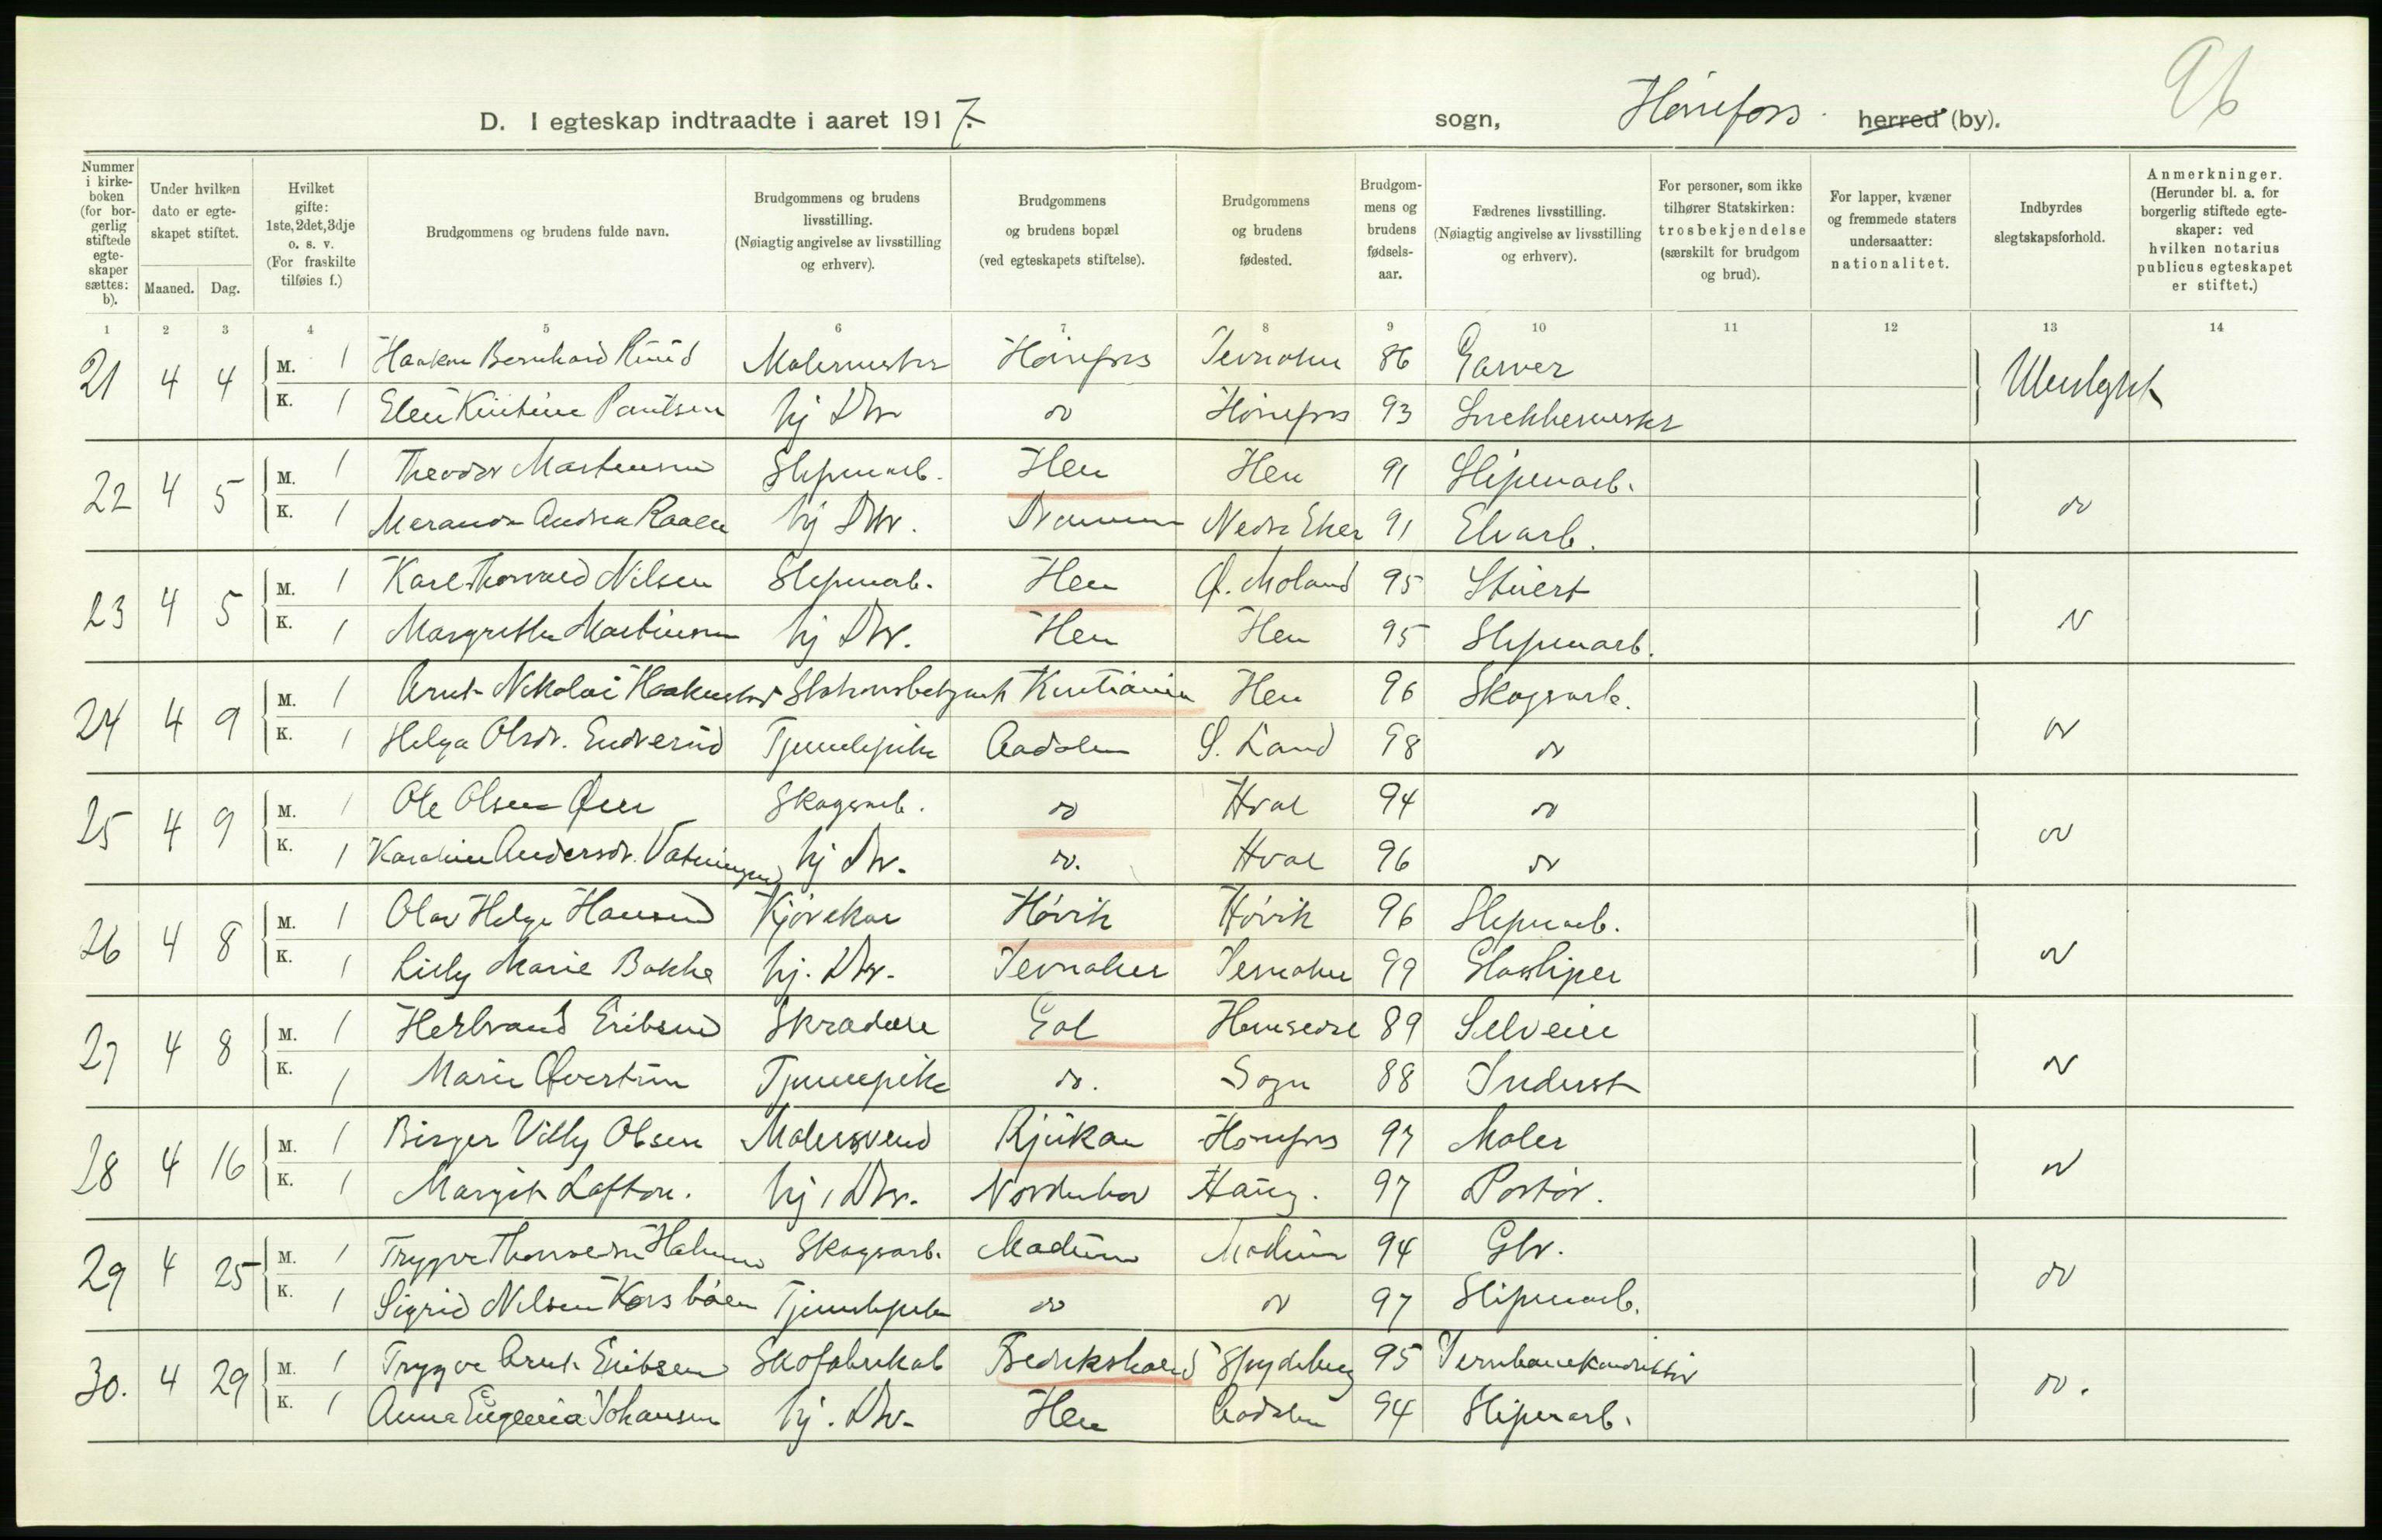 96
D. I egteskap indtraadte i aaret 1917. sogn, Hønefoss herred (by).
Nummer i kirkeboken (for borgerlig stiftede egteskaper sættes: b).
Under hvilken dato er egteskapet stiftet.
Maaned. Dag.
Hvilket gifte: 1ste, 2det, 3dje o. s. v. (For fraskilte tilføies f.)
Brudgommens og brudens fulde navn.
Brudgommens og brudens livsstilling. (Nøiagtig angivelse av livsstilling og erhverv).
Brudgommens og brudens bopæl (ved egteskapets stiftelse).
Brudgommens og brudens fødested.
Brudgommens og brudens fødselsaar.
Fædrenes livsstilling. (Nøiagtig angivelse av livsstilling og erhverv).
For personer, som ikke tilhører Statskirken: trosbekjendelse (særskilt for brudgom og brud).
For lapper, kvæner og fremmede staters undersaatter: nationalitet.
Indbyrdes slegtskapsforhold.
Anmerkninger. (Herunder bl. a. for borgerlig stiftede egteskaper: ved hvilken notarius publicus egteskapet er stiftet.)
1 2 3 4 5 6 7 8 9 10 11 12 13 14
21 4 4 M. 1 Haakon Bernhard Ruud Malermester Hønefoss Jevnaker 86 Garver Ubeslegtet
K. 1 Kristine hj Dtr do Hønefoss 93 Snekkermester
22 4 5 M. 1 Theodor Martinsen Sliperiarb. Hen Hen 91 Sliperiarb. do
K. 1 Andrea Raaen hj Dtr. Drammen Nedre Eker 91 Elvarb.
23 4 5 M. 1 Karl Thorvald Nilsen Sliperiarb. Hen Ø. Moland 95 Stuert do
K. 1 Margrethe Martinsen hj Dtr. Hen Hen 95 Sliperiarb.
24 4 9 M. 1 Arnt Nikolai Haakenstad Stationsbetjent Kristiania Hen 96 Skogsarb. do
K. 1 Helga Olsdr. Enderud Tjenestepike Aadalen S. Land 98 do
25 4 9 M. 1 Ole Olsen Øen Skogsarb. do Hval 94 do do
K. 1 Karoline Andersdr. hj Dtr. do. Hval 96 do
26 4 8 M. 1 Olav Helge Hansen Kjørekar Høvik Høvik 96 Sliperiarb. do
K. 1 Lilly Marie Bakke hj. Dtr. Jevnaker Jevnaker 99 Glassliper
27 4 8 M. 1 Herbrand Eriksen Skrædder Gol Hemsedal 89 Selveier do
K. 1 Marie Øvertun Tjenestepike do. Sogn 88 Inderst
28 4 16 M. 1 Birger Villy Olsen Malersvend Rjukan Hønefoss 97 Maler do
K. 1 Margit Loften. hj. Dtr. Norderhov Haug. 97 Portør.
29 4 25 M. 1 Trygve Thorvaldsen Skogsarb. Modum Modum 94 Gbr. do
K. 1 Sigrid Nilsen Korsbøen Tjenestepike do do 97 Sliperiarb.
30. 4 29 M. 1 Trygve Arnt Eriksen Skofabrikarb Fredrikshald Spydeberg 95 Jernbanekonduktør do.
K. 1 Anna Eugenia Johansen hj. Dtr. Hen Aadalen 94 Sliperiarb.